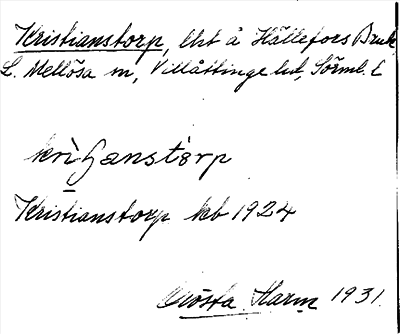 Kristianstorp, lht å Hällefors Bruk
L. Mellösa sn, Villåttinge hd, Sörml. L
krìʃanstòrp
Kristianstorp kb 1924
Gösta Harm 1931.